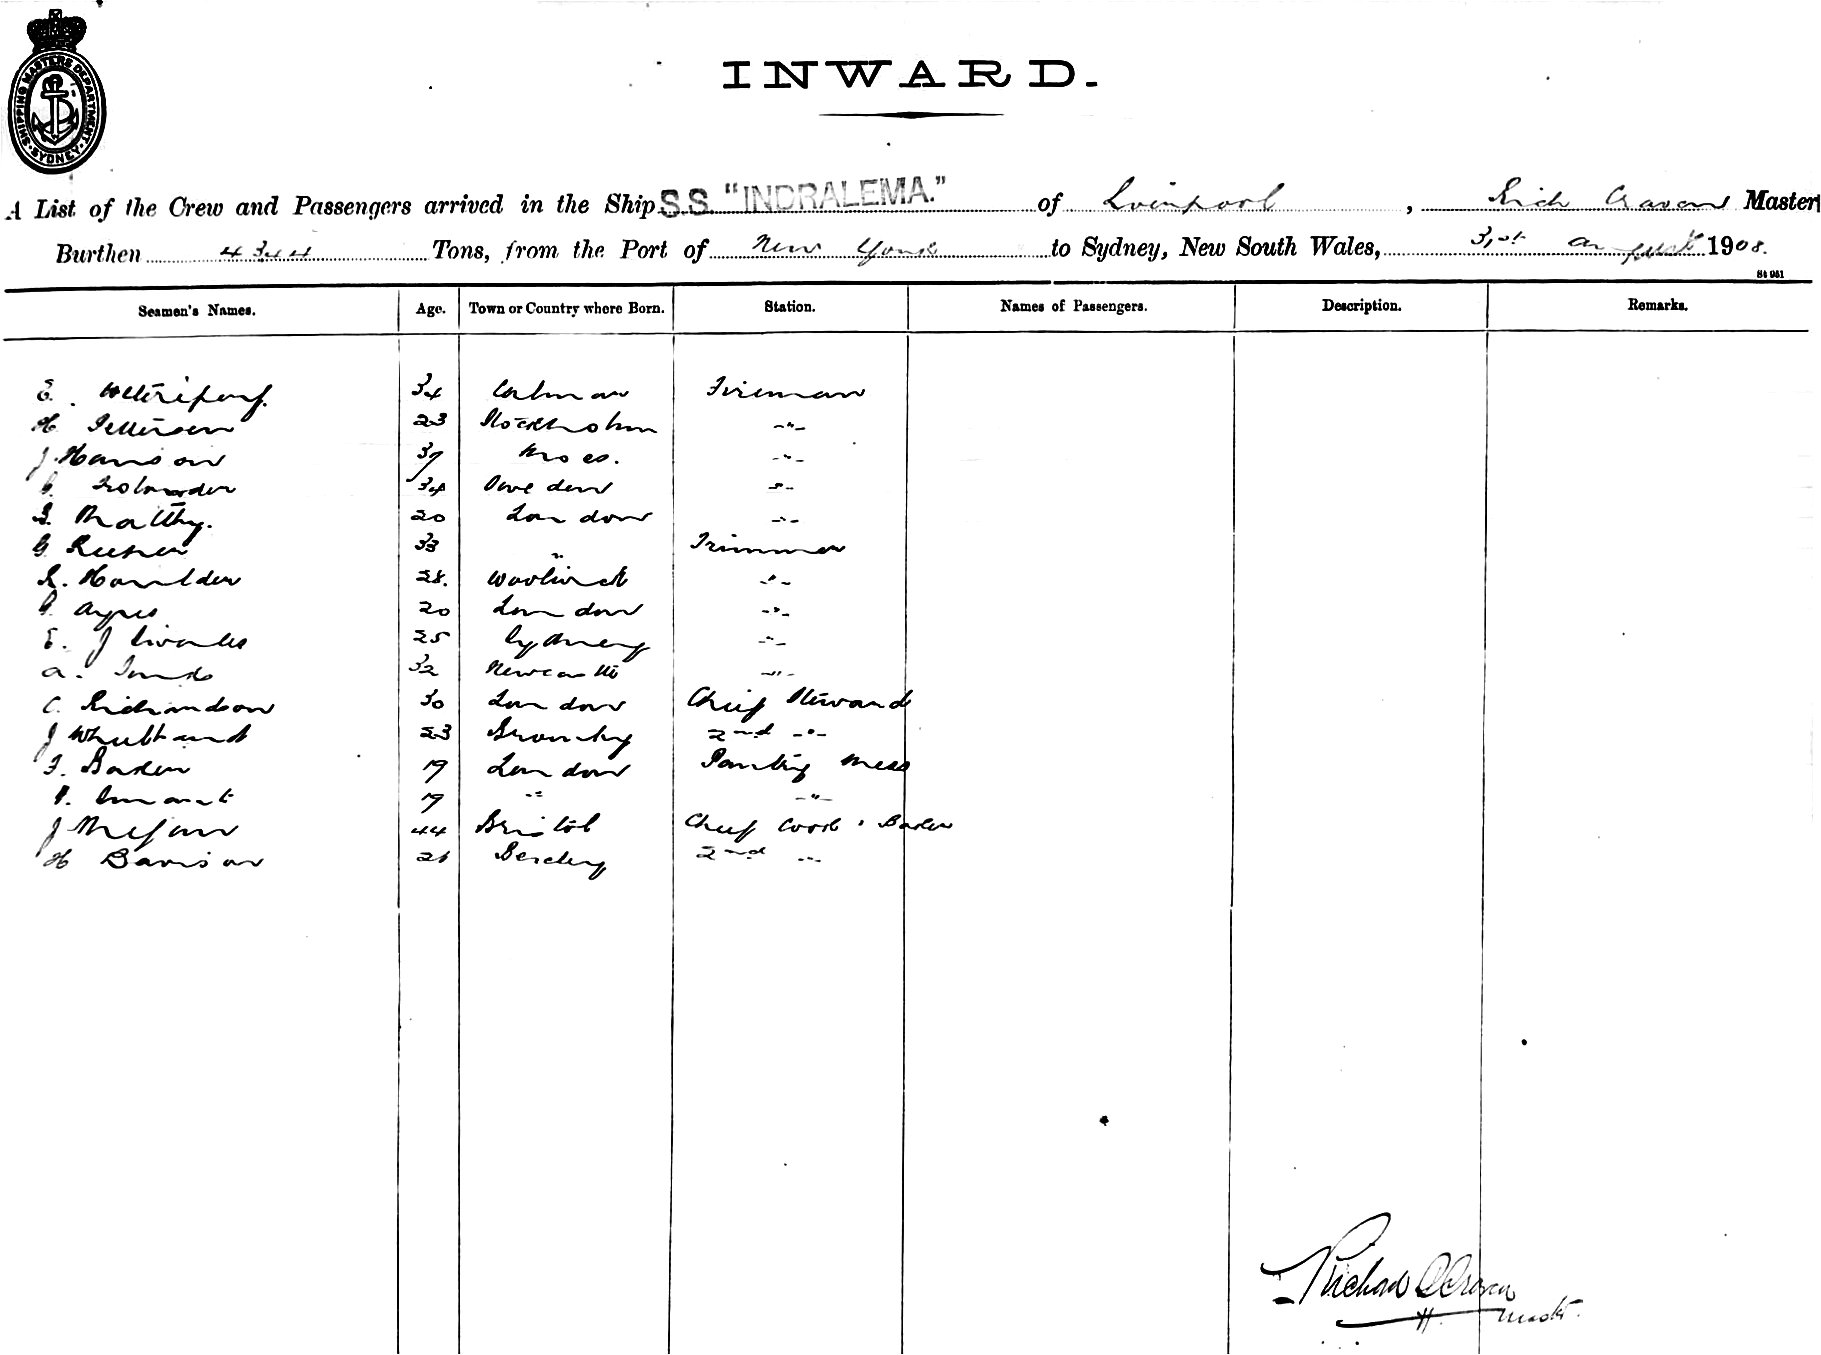 SHIPPING MASTERS DEPARTMENT SYDNEY
INWARD.
A List of the Crew and Passengers arrived in the Ship S.S "INDRALEMA." of Liverpool, Rich Craven Master
Burthen 4344 Tons, from the Port of New York to Sydney, New South Wales, 31st August 1908.
St 961
Seamen's Names. Age. Town or Country where Born. Station. Names of Passengers. Description. Remarks.
E. 34 Fireman
H. Pettersen 23 Stockholm -"-
J. Hanson 37 Moss. -"-
34 -"-
20 London -"-
G. 33 " Trimmer
28. Woolwich -"-
G. Ayres 20 London -"-
E. J 25 Sydney -"-
A. 32 Newcastle -"-
C. Richardson 30 London Chief Steward
J 23 Bromley 2nd -"-
F. Baker 19 London Pantry Mess
19 -"- -"-
J 44 Bristol Chief Cook & Baker
H 2nd -"-
Richard Craven
Master.